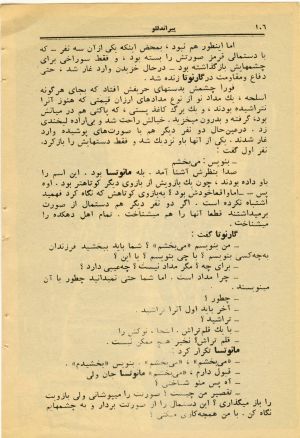 ۱۰۶ پیراندللو
اما اینطور هم نبود، بمحض اینکه یکی ازآن سه نفر ـ که
با دستمالی قرمز صورتش را بسته بود، و فقط سوراخی برای
چشمهایش بازگذاشته بود ـ درحال خزیدن وارد غار شد، حتی
دفاع ومقاومت در گارنوتا زنده شد.
فورا چشمش بدستهای حریفش افتاد که بجای هرگونه
اسلحه، یک مداد نو از نوع مدادهای ارزان قیمتی که هنوز آنرا
نتراشیده بودند، و یک برگ کاغذ پستی، که پاکتی هم در میانش
بود، گرفته و بدرون میخزید. خیالش راحت شد و بی‌اراده لبخندی
زد. درعین‌حال دو نفر دیگر هم با صورت‌های پوشیده وارد
غار شدند. یکی از آنها باو نزدیک شد و فقط دستهایش را بازکرد.
نفر اول گفت:
ـ بنویس: می‌بخشم
صدا بنظرش آشنا آمد. بله مانوتسا بود. این اسم را
باو داده بودند، چون یک بازویش از بازوی دیگر کوتاهتر بود. اوه
پس ـ اما واقعاخودش بود؟ به‌بازوی کوتاهش که نگاه کرد فهمید
اشتباه نکرده است. اگر دو نفر دیگر هم دستمال از صورت
برمیداشتند قطعا آنها را هم میشناخت. تمام اهل دهکده را
میشناخت.
گارنوتا گفت:
ـ من بنویسم «می‌بخشم»؟ شما باید ببخشید فرزندان
به‌چه‌کسی بنویسم؟ با چی بنویسم؟ با این؟
ـ برای چه؟ مگر مداد نیست؟ چه‌عیبی دارد؟
ـ چرا مداد است. اما شما حتی نمیدانید چطور با آن
مینویسند.
ـ چطور؟
ـ آخر باید اول آنرا تراشید
ـ تراشید؟
ـ با یک قلم‌تراش. اینجا، نوکش را
ـ قلم تراش! نخیر همچو ممکن نیست.
مانوتسا تکرار کرد:
ـ «می‌بخشم»، «می‌بخشم». بنویس «بخشیدم».
ـ قبول دارم، «می‌بخشم» مانوتسا جان ولی
ـ آه پس منو شناختی؟
ـ تقصیر من چیست؟ صورتت را میپوشانی ولی بازویت
را باز میگذاری؟ این دستمال را از صورتت بردار و به چشمهایم
نگاه کن. با من همچه‌کاری میکنی؟